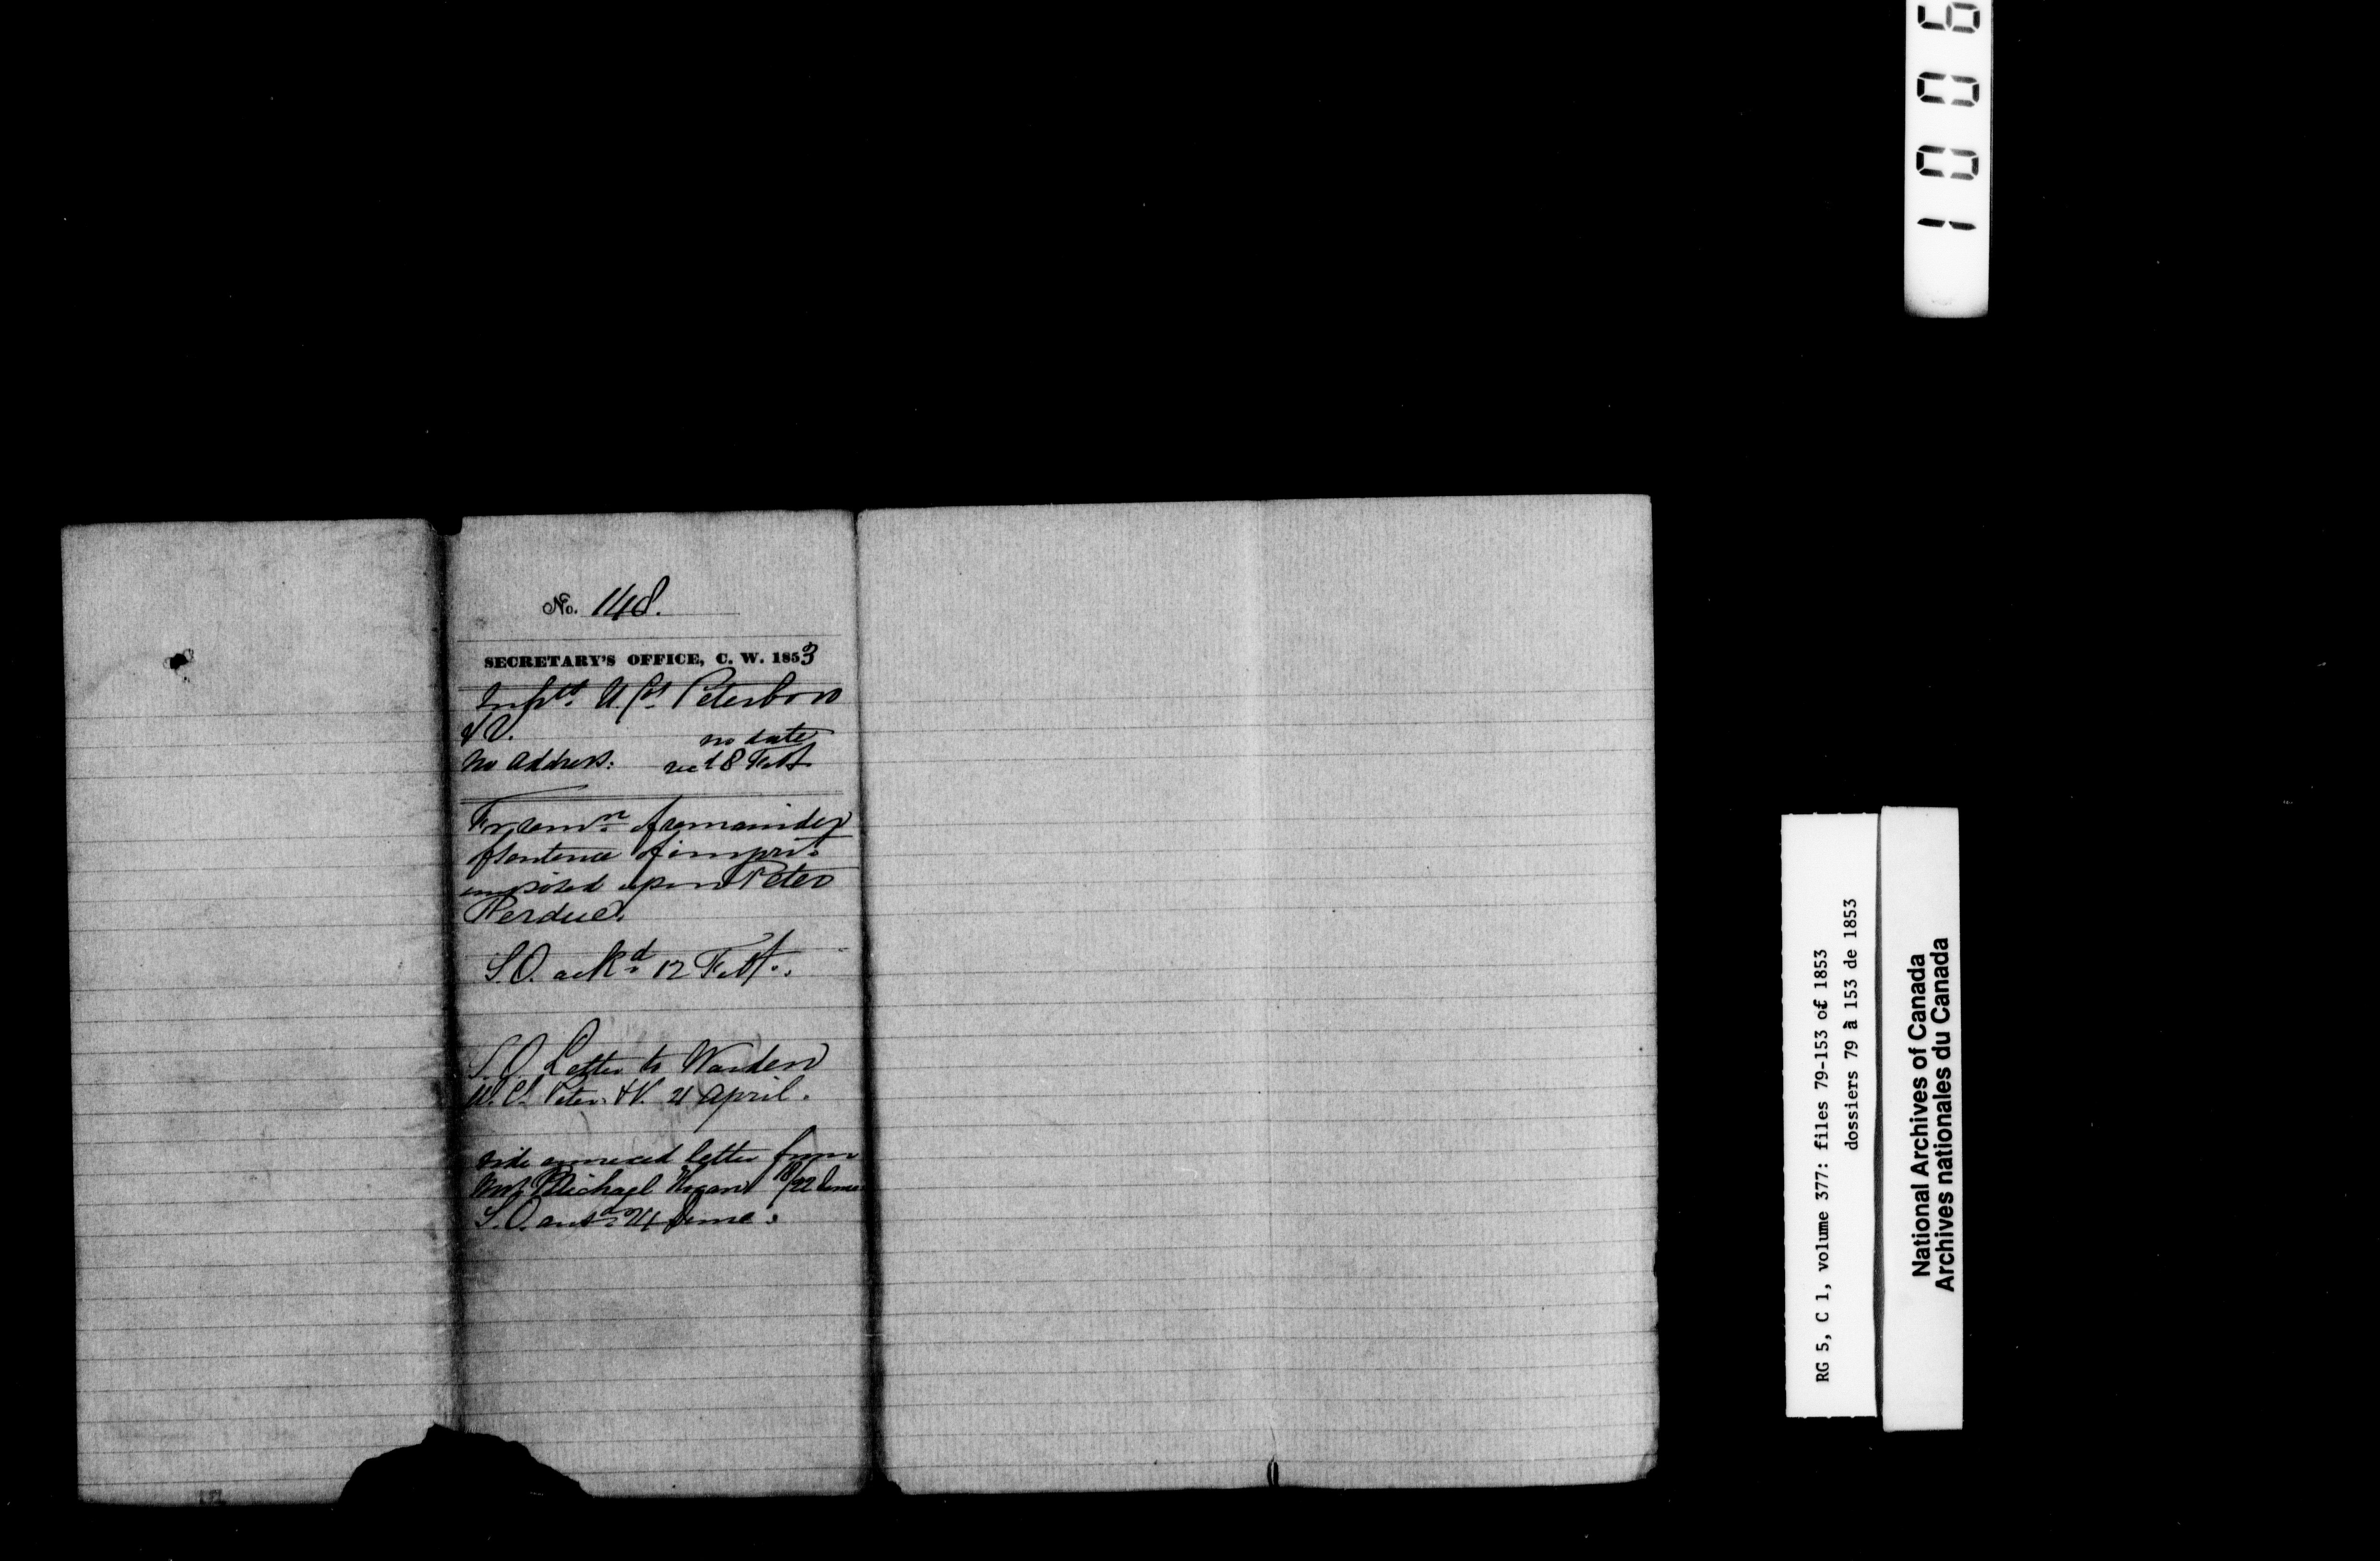 No. 148.
SECRETARY'S OFFICE, C. W. 1853
U. Cs. Peterboro
& V.
no date
No Address: recd 8 Feb
For remn of remainder
of sentence of impris.
imposed upon Peter
Perdue.
S.O. ackd 12 Feb.
S.O. Letter to Warden
U. Cs. Peter. & V. 21 April.
vide annexed letter from
Michael Hogan 18/22 June
S.O. ansd 24 June.
1006
RG 5, C 1, volume 377: files 79-153 of 1853
dossiers 79 à 153 de 1853
National Archives of Canada
Archives nationales du Canada